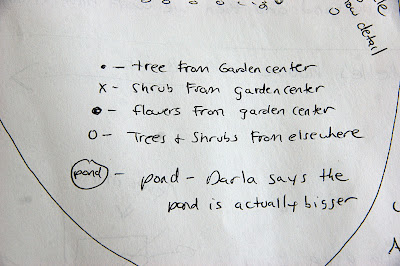 • - tree From Garden center
x - shrub From garden center
● - flowers From garden center
O - Trees + Shrubs From elsewhere
pond - pond - Darla says the
pond is actually bigger
detail